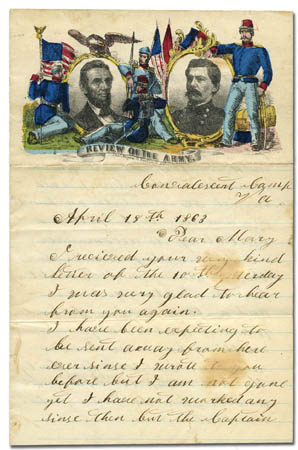 REVIEW OF THE ARMY.
Convalescent Camp
Va
April 18th 1863
Dear Mary
I recieved your very kind
letter of the 10th
I was very glad to hear
from you again.
I have been expecting to
be sent away from here
ever since I wrote to you
before but I am not gone
yet I have not marked any
since then but the Captain